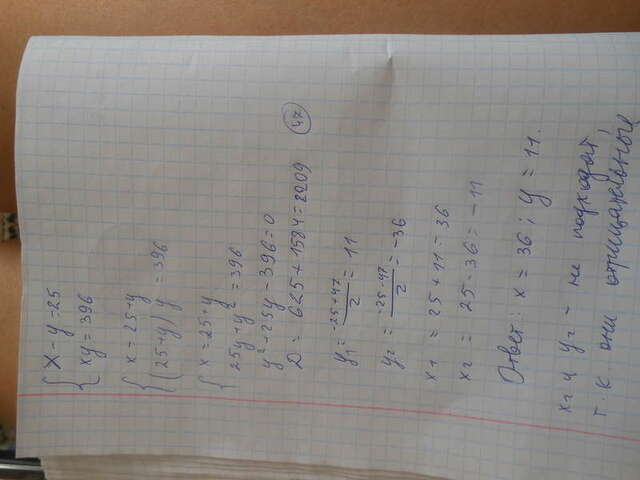 { x - y = 25
{ xy = 396
{ x = 25 + y
{ (25 + y) y = 396
{ x = 25 + y
{ 25y + y² = 396
y² + 25y - 396 = 0
D = 625 + 1584 = 2209 (47)
y₁ = (-25 + 47)/2 = 11
y₂ = (-25 - 47)/2 = -36
x₁ = 25 + 11 = 36
x₂ = 25 - 36 = -11
Ответ: x = 36; y = 11.
x₂ и y₂ - не подходят,
т.к. они отрицательные